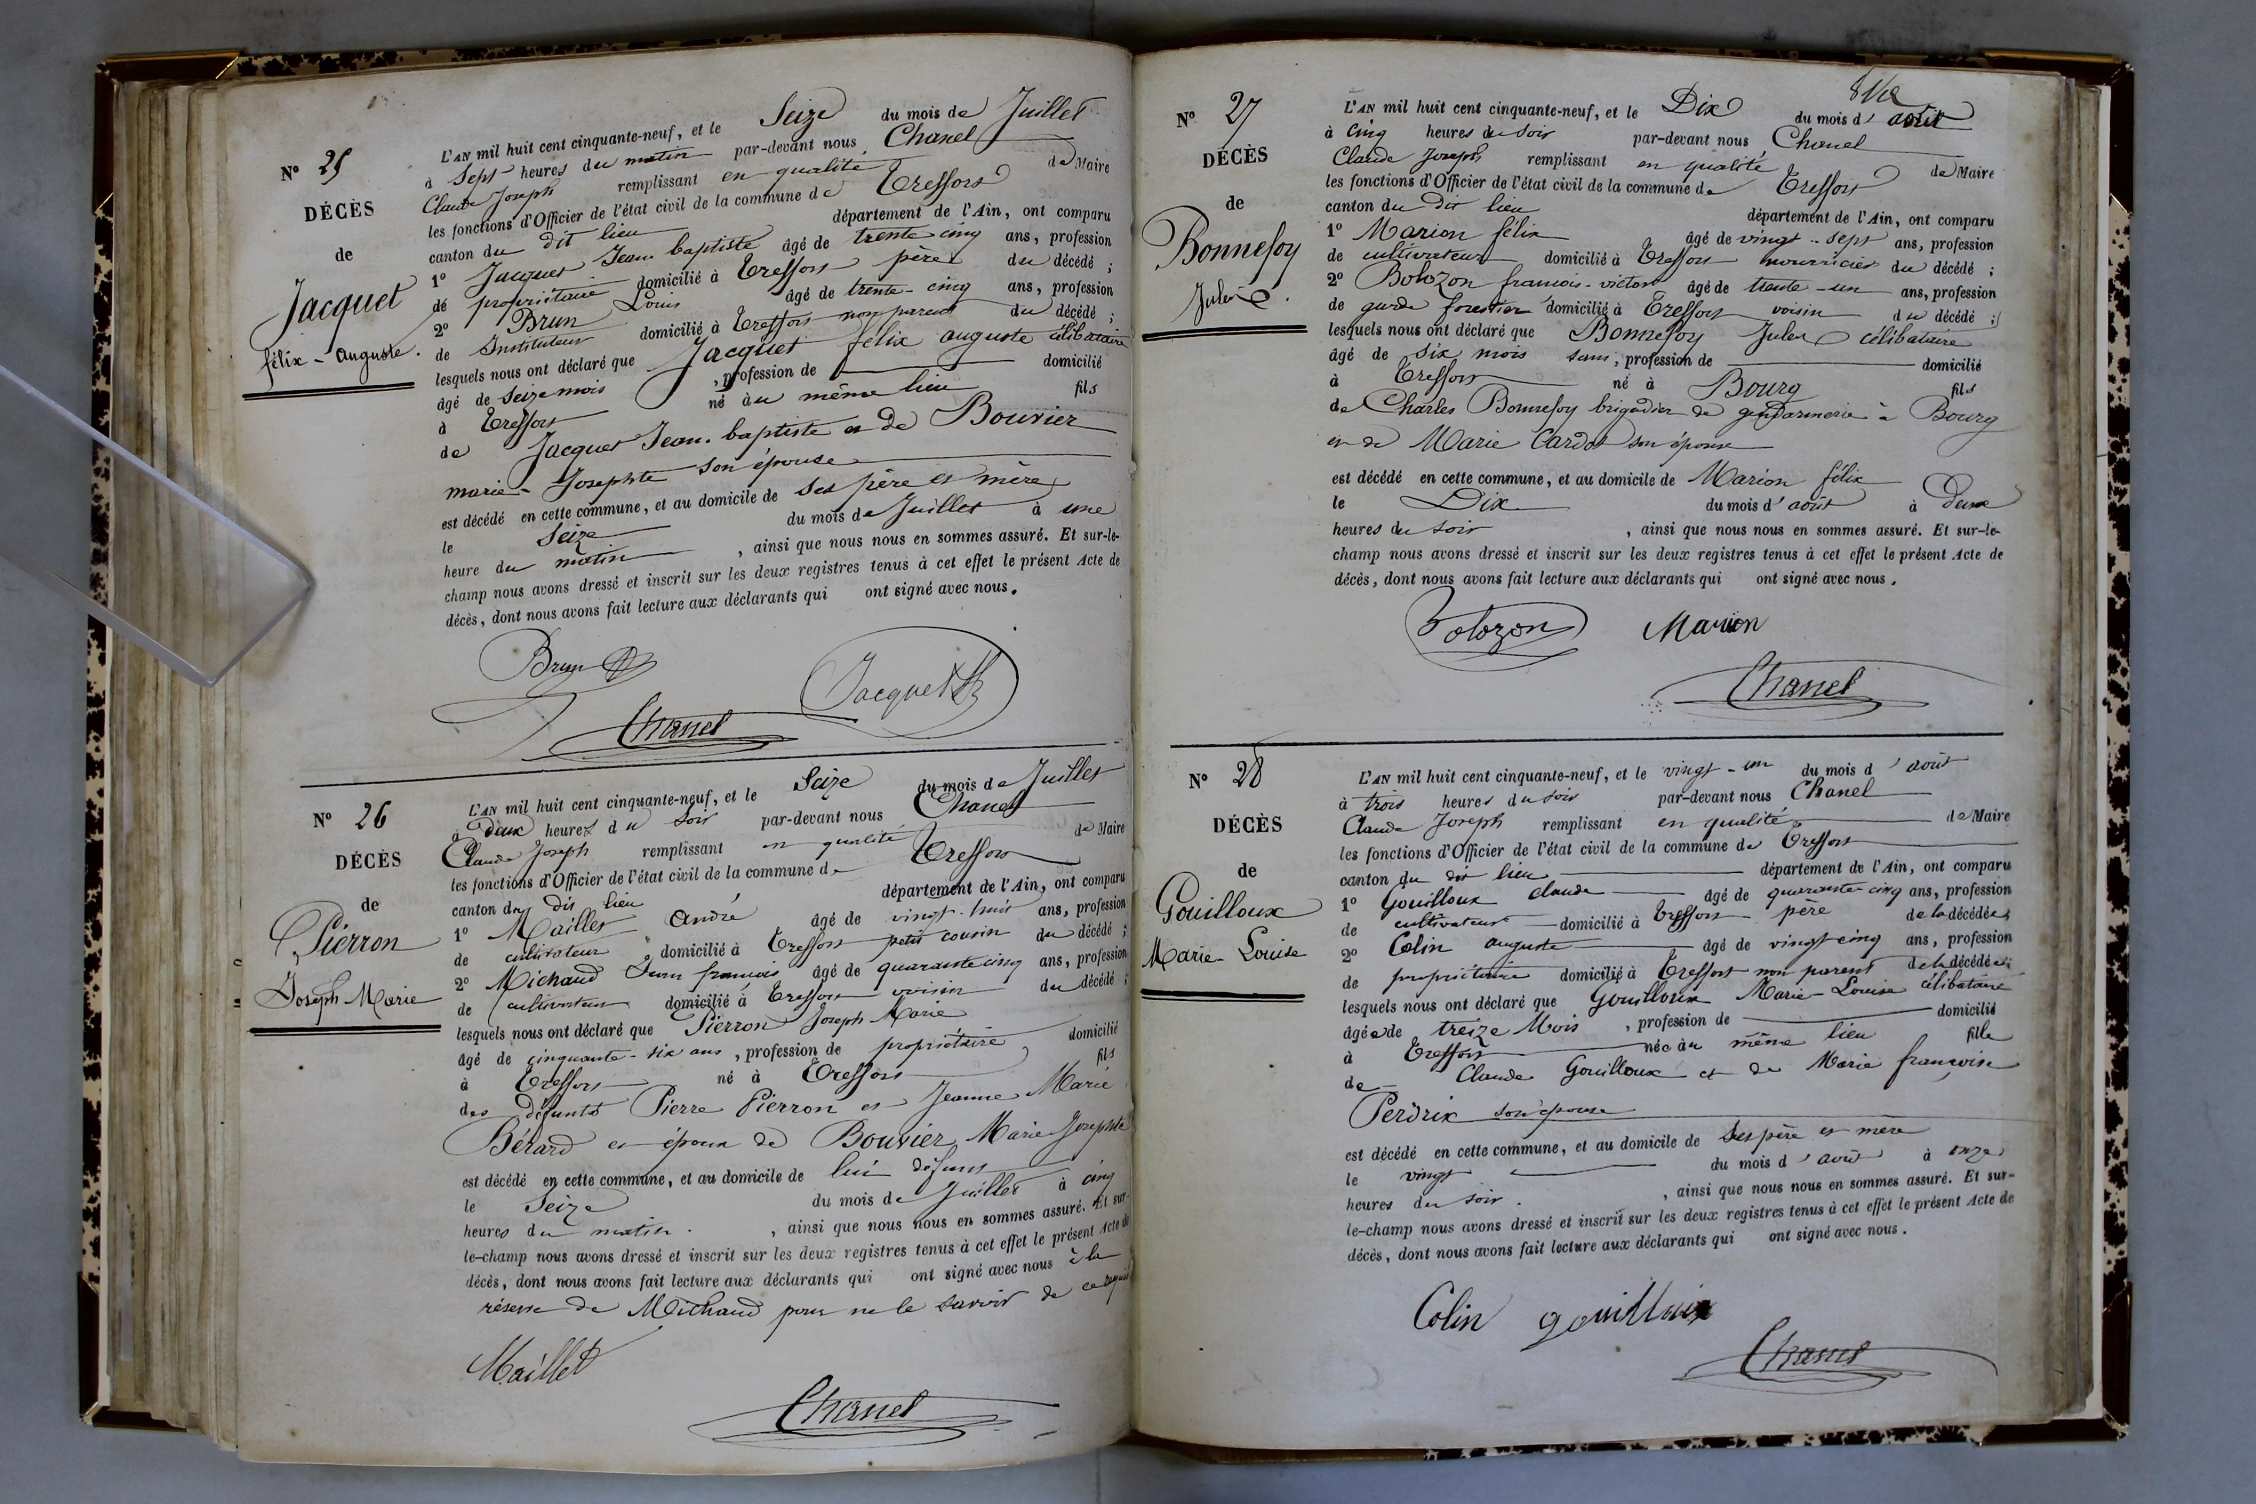 N° 25
DÉCÈS
de
Jacquet
félix - auguste.
L'AN mil huit cent cinquante-neuf, et le Seize du mois de Juillet
à Sept heures du matin par-devant nous Chanel
Claude Joseph remplissant en qualité de Maire
les fonctions d'Officier de l'état civil de la commune de Treffort
canton du dit lieu département de l'Ain, ont comparu
1° Jacquet Jean baptiste âgé de trente cinq ans, profession
de propriétaire domicilié à Treffort père du décédé ;
2° Brun Louis âgé de trente-cinq ans, profession
de Instituteur domicilié à Treffort non parent du décédé ;
lesquels nous ont déclaré que Jacquet félix auguste célibataire
âgé de seize mois , profession de domicilié
à Treffort né au même lieu fils
de Jacquet Jean-baptiste et de Bouvier
marie-Josephte son épouse
est décédé en cette commune, et au domicile de ses père et mère
le Seize du mois de Juillet à une
heure du matin , ainsi que nous nous en sommes assuré. Et sur-le-
champ nous avons dressé et inscrit sur les deux registres tenus à cet effet le présent Acte de
décès, dont nous avons fait lecture aux déclarants qui ont signé avec nous.
Brun Jacquet
Chanel
N° 26
DÉCÈS
de
Pierron
Joseph Marie
L'AN mil huit cent cinquante-neuf, et le Seize du mois de Juillet
à deux heures du soir par-devant nous Chanel
Claude Joseph remplissant en qualité de Maire
les fonctions d'Officier de l'état civil de la commune de Treffort
canton du dit lieu département de l'Ain, ont comparu
1° Maillet André âgé de vingt-huit ans, profession
de cultivateur domicilié à Treffort petit cousin du décédé ;
2° Michaud Jean françois âgé de quarante cinq ans, profession
de cultivateur domicilié à Treffort voisin du décédé ;
lesquels nous ont déclaré que Pierron Joseph Marie
âgé de cinquante-six ans , profession de propriétaire domicilié
à Treffort né à Treffort fils
des défunts Pierre Pierron et Jeanne Marie
Bérard et époux de Bouvier Marie Josephte
est décédé en cette commune, et au domicile de lui défunt
le Seize du mois de Juillet à cinq
heures du matin. , ainsi que nous nous en sommes assuré. Et sur-
le-champ nous avons dressé et inscrit sur les deux registres tenus à cet effet le présent Acte de
décès, dont nous avons fait lecture aux déclarants qui ont signé avec nous à la
réserve de Michaud pour ne le savoir de ce requis
Maillet
Chanel
N° 27
DÉCÈS
de
Bonnefoy
Jules
L'AN mil huit cent cinquante-neuf, et le Dix du mois d'août
à cinq heures du soir par-devant nous Chanel
Claude Joseph remplissant en qualité de Maire
les fonctions d'Officier de l'état civil de la commune de Treffort
canton du dit lieu département de l'Ain, ont comparu
1° Marion félix âgé de vingt-sept ans, profession
de cultivateur domicilié à Treffort nourricier du décédé ;
2° Bolozon francois-victor âgé de trente-un ans, profession
de garde forestier domicilié à Treffort voisin du décédé ;
lesquels nous ont déclaré que Bonnefoy Jules célibataire
âgé de six mois sans, profession de domicilié
à Treffort né à Bourg fils
de Charles Bonnefoy brigadier de gendarmerie à Bourg
et de Marie Cardot son épouse
est décédé en cette commune, et au domicile de Marion félix
le Dix du mois d'août à Deux
heures du soir , ainsi que nous nous en sommes assuré. Et sur-le-
champ nous avons dressé et inscrit sur les deux registres tenus à cet effet le présent Acte de
décès, dont nous avons fait lecture aux déclarants qui ont signé avec nous.
Bolozon Marion
Chanel
N° 28
DÉCÈS
de
Gouilloux
Marie-Louise
L'AN mil huit cent cinquante-neuf, et le vingt-un du mois d'août
à trois heures du soir par-devant nous Chanel
Claude Joseph remplissant en qualité de Maire
les fonctions d'Officier de l'état civil de la commune de Treffort
canton du dit lieu département de l'Ain, ont comparu
1° Gouilloux claude âgé de quarante-cinq ans, profession
de cultivateur domicilié à Treffort père de la décédée ;
2° Colin auguste âgé de vingt-cinq ans, profession
de propriétaire domicilié à Treffort non parent de la décédée ;
lesquels nous ont déclaré que Gouilloux Marie-Louise célibataire
âgée de treize Mois , profession de domicilié
à Treffort née au même lieu fille
de Claude Gouilloux et de Marie françoise
Perdrix son épouse
est décédé en cette commune, et au domicile de ses père et mère
le vingt du mois d'août à onze
heures du soir. , ainsi que nous nous en sommes assuré. Et sur-
le-champ nous avons dressé et inscrit sur les deux registres tenus à cet effet le présent Acte de
décès, dont nous avons fait lecture aux déclarants qui ont signé avec nous.
Colin gouilloux
Chanel